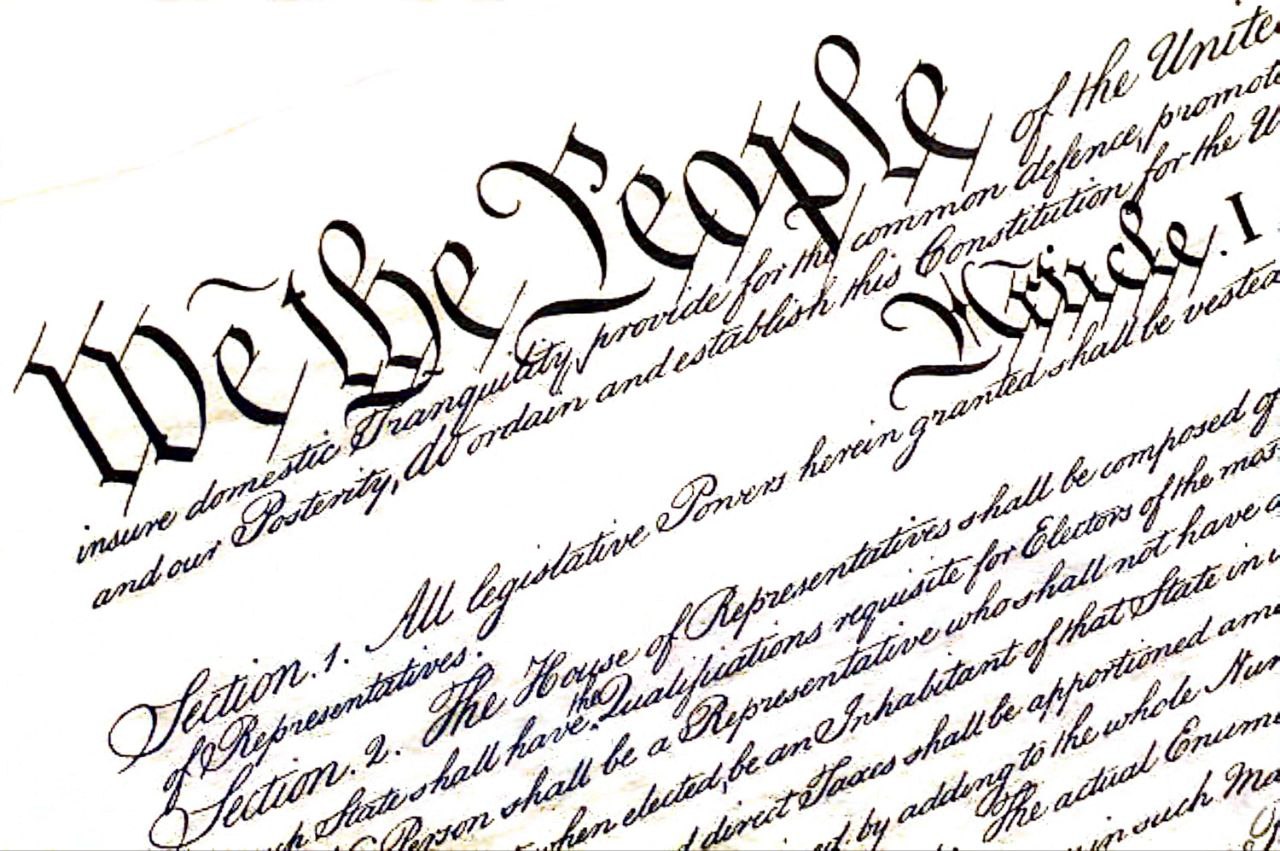 We the People of the Unite
insure domestic Tranquility, provide for the common defence, promote
and our Posterity, do ordain and establish this Constitution for the U
Article. I
Section. 1. All legislative Powers herein granted shall be vested
of Representatives.
Section. 2. The House of Representatives shall be composed of
ch State shall have the Qualifications requisite for Electors of the mos
Person shall be a Representative who shall not have a
when elected, be an Inhabitant of that State in
d direct Taxes shall be apportioned am
by adding to the whole Num
The actual Enum
in such Ma